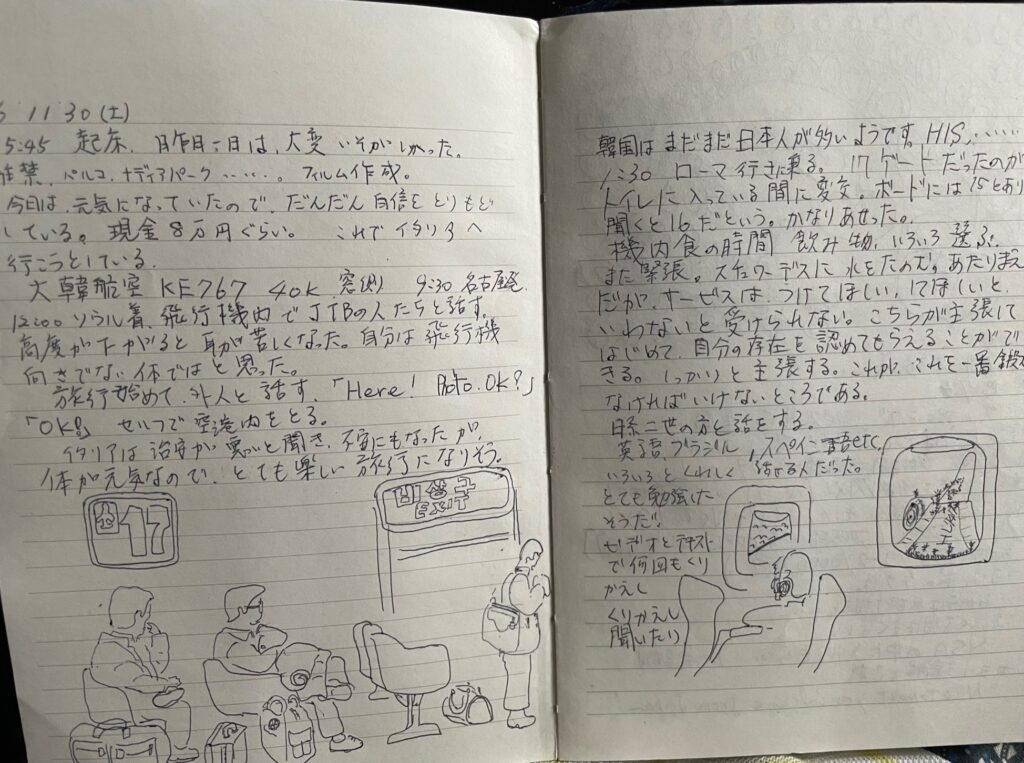 11 30 (土)
5:45 起床. 昨日一日は、大変いそがしかった。
パルコ、ナディアパーク……。フィルム作成。
今日は、元気になっていたので、だんだん自信をとりもど
している。現金8万円ぐらい。 これでイタリアへ
行こうとしている.
大韓航空 KE767 40K 窓側 9:30 名古屋発.
12:00 ソウル着. 飛行機内でJTBの人たちと話す。
高度が下がると耳が苦しくなった。自分は飛行機
向きでない体ではと思った。
旅行始めて、外人と話す.「Here! Photo. OK?」
「OK!」 セルフで空港内をとる。
イタリアは治安が悪いと聞き、不安にもなったが、
体が元気なので、とても楽しい旅行になりそう。
17
비상구
EXIT
韓国はまだまだ日本人が多いようです。HIS、……
1:30 ローマ行きに乗る。17ゲートだったのが
トイレに入っている間に変交。ボードには15とあり
聞くと16だという。かなりあせった。
機内食の時間 飲み物、いろいろ選ぶ.
また緊張。スチュワーデスに水をたのむ。あたりまえ
だが、サービスは、つけてほしい、してほしいと、
いわないと受けられない。こちらが主張して
はじめて、自分の存在を認めてもらえることがで
きる。しっかりと主張する。これが、これを一番
なければいけないところである。
日系二世の方と話をする。
英語、ブラジル、スペイン語etc、
いろいろとくわしく 話せる人だった。
とても勉強した
そうだ。
ビデオとテキスト
で何回もくり
かえし
くりかえし
聞いたり